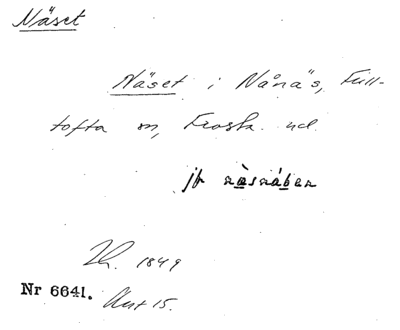 Näset
Näset i Nånäs, Full-
tofta sn, Frosta hd.
jfr
1849
Nr 6641.